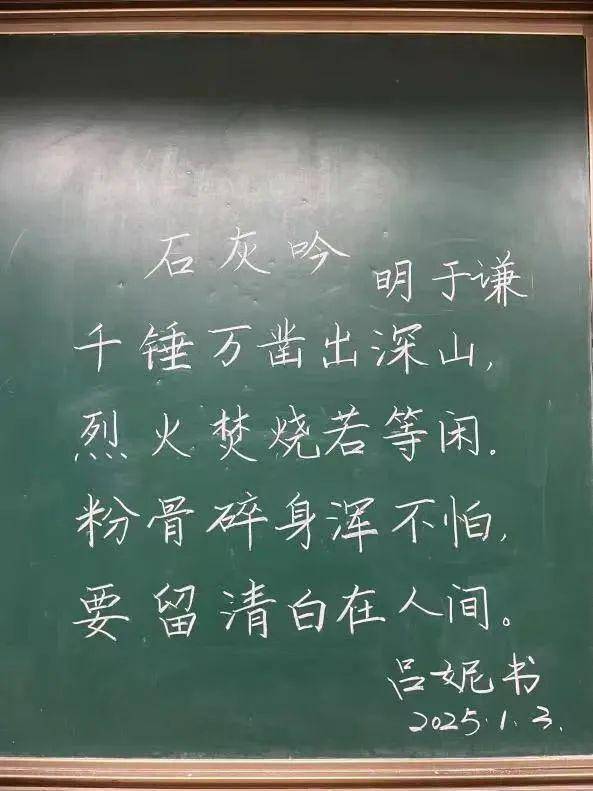 石灰吟
明于谦
千锤万凿出深山,
烈火焚烧若等闲.
粉骨碎身浑不怕,
要留清白在人间。
吕妮书
2025.1.3.